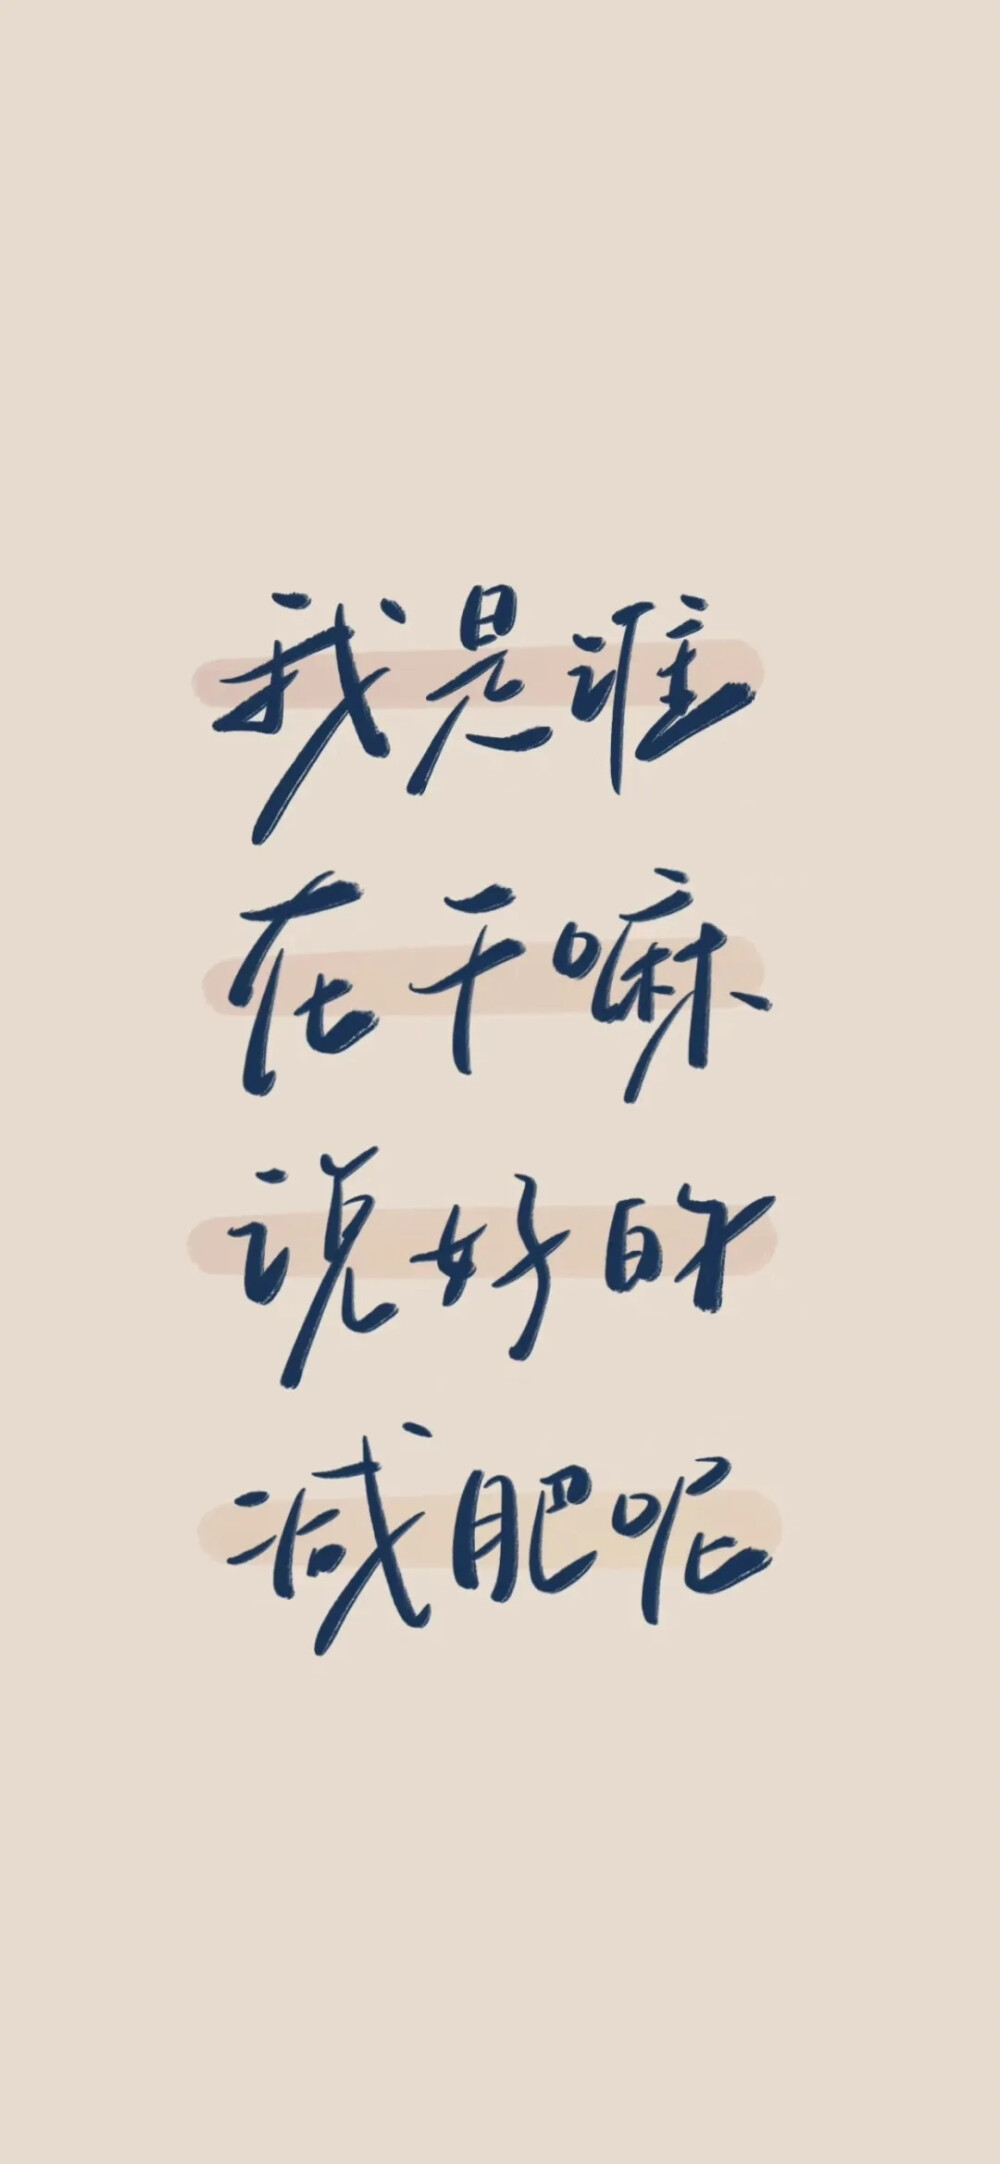 我是谁
在干嘛
说好的
减肥呢